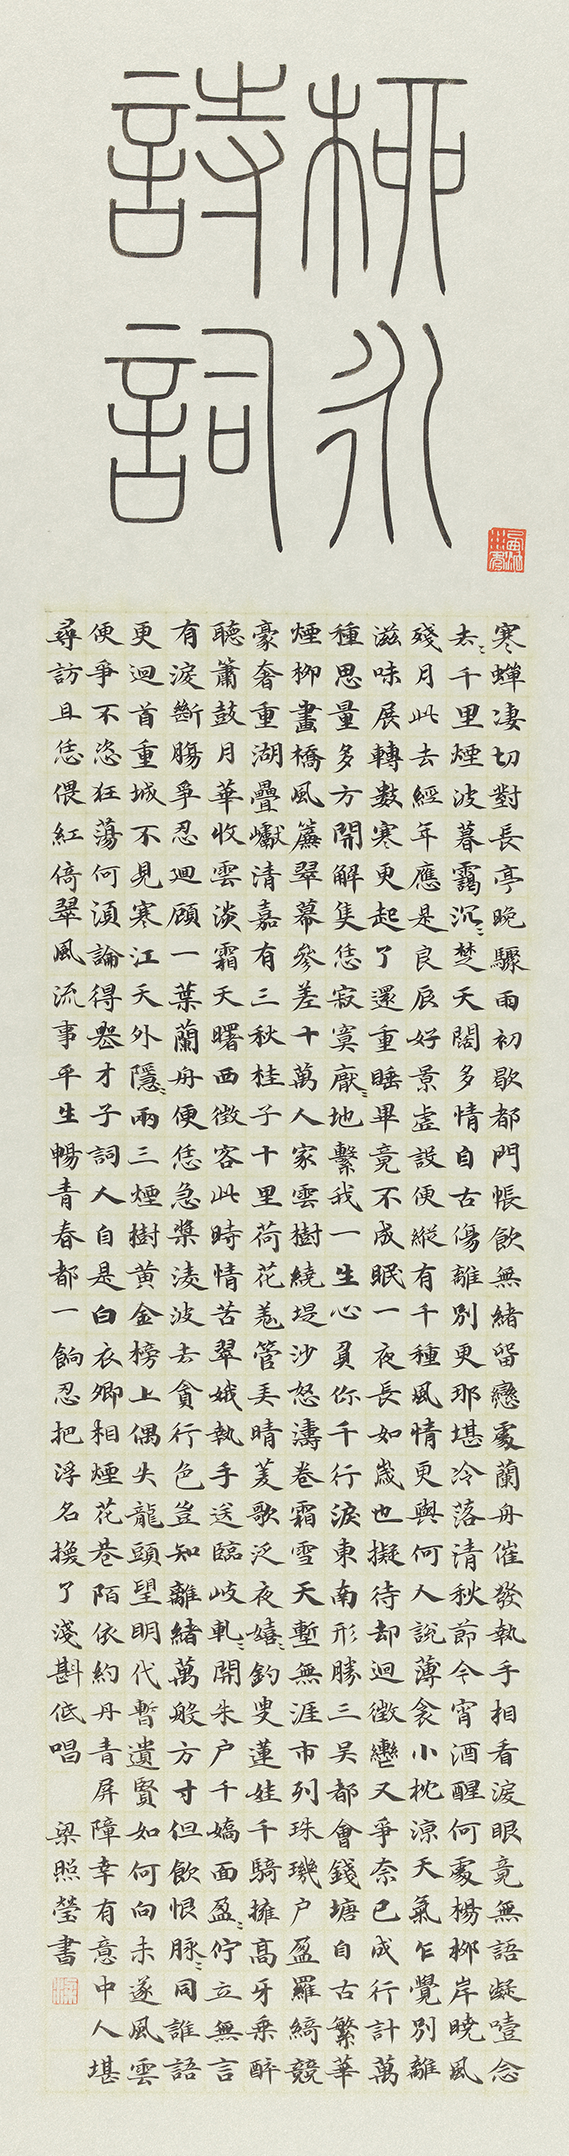 柳永
詩詞
寒蟬凄切對長亭晚驟雨初歇都門帳飲無緒留戀處蘭舟催發執手相看淚眼竟無語凝噎念
去〻千里煙波暮靄沉〻楚天闊多情自古傷離別更那堪冷落清秋節今宵酒醒何處楊柳岸曉風
殘月此去經年應是良辰好景虛設便縱有千種風情更與何人說薄衾小枕涼天氣乍覺別離
滋味展轉數寒更起了還重睡畢竟不成眠一夜長如歲也擬待却迴徵轡又爭奈已成行計萬
種思量多方開解隻恁寂寞厭〻地繫我一生心負你千行淚東南形勝三吳都會錢塘自古繁華
煙柳畫橋風簾翠幕參差十萬人家雲樹繞堤沙怒濤卷霜雪天塹無涯市列珠璣户盈羅綺競
豪奢重湖疊巘清嘉有三秋桂子十里荷花羌管弄晴菱歌泛夜嬉〻釣叟蓮娃千騎擁高牙乘醉
聽簫鼓月華收雲淡霜天曙西徵客此時情苦翠娥執手送臨岐軋〻開朱户千嬌面盈〻佇立無言
有淚斷腸爭忍迴顧一葉蘭舟便恁急槳淩波去貪行色豈知離緒萬般方寸但飲恨脉〻同誰語
更迴首重城不見寒江天外隱〻兩三煙樹黄金榜上偶失龍頭望明代暫遺賢如何向未遂風雲
便爭不恣狂蕩何須論得喪才子詞人自是白衣卿相煙花巷陌依約丹青屏障幸有意中人堪
尋訪且恁偎紅倚翠風流事平生暢青春都一餉忍把浮名換了淺斟低唱 梁照瑩書